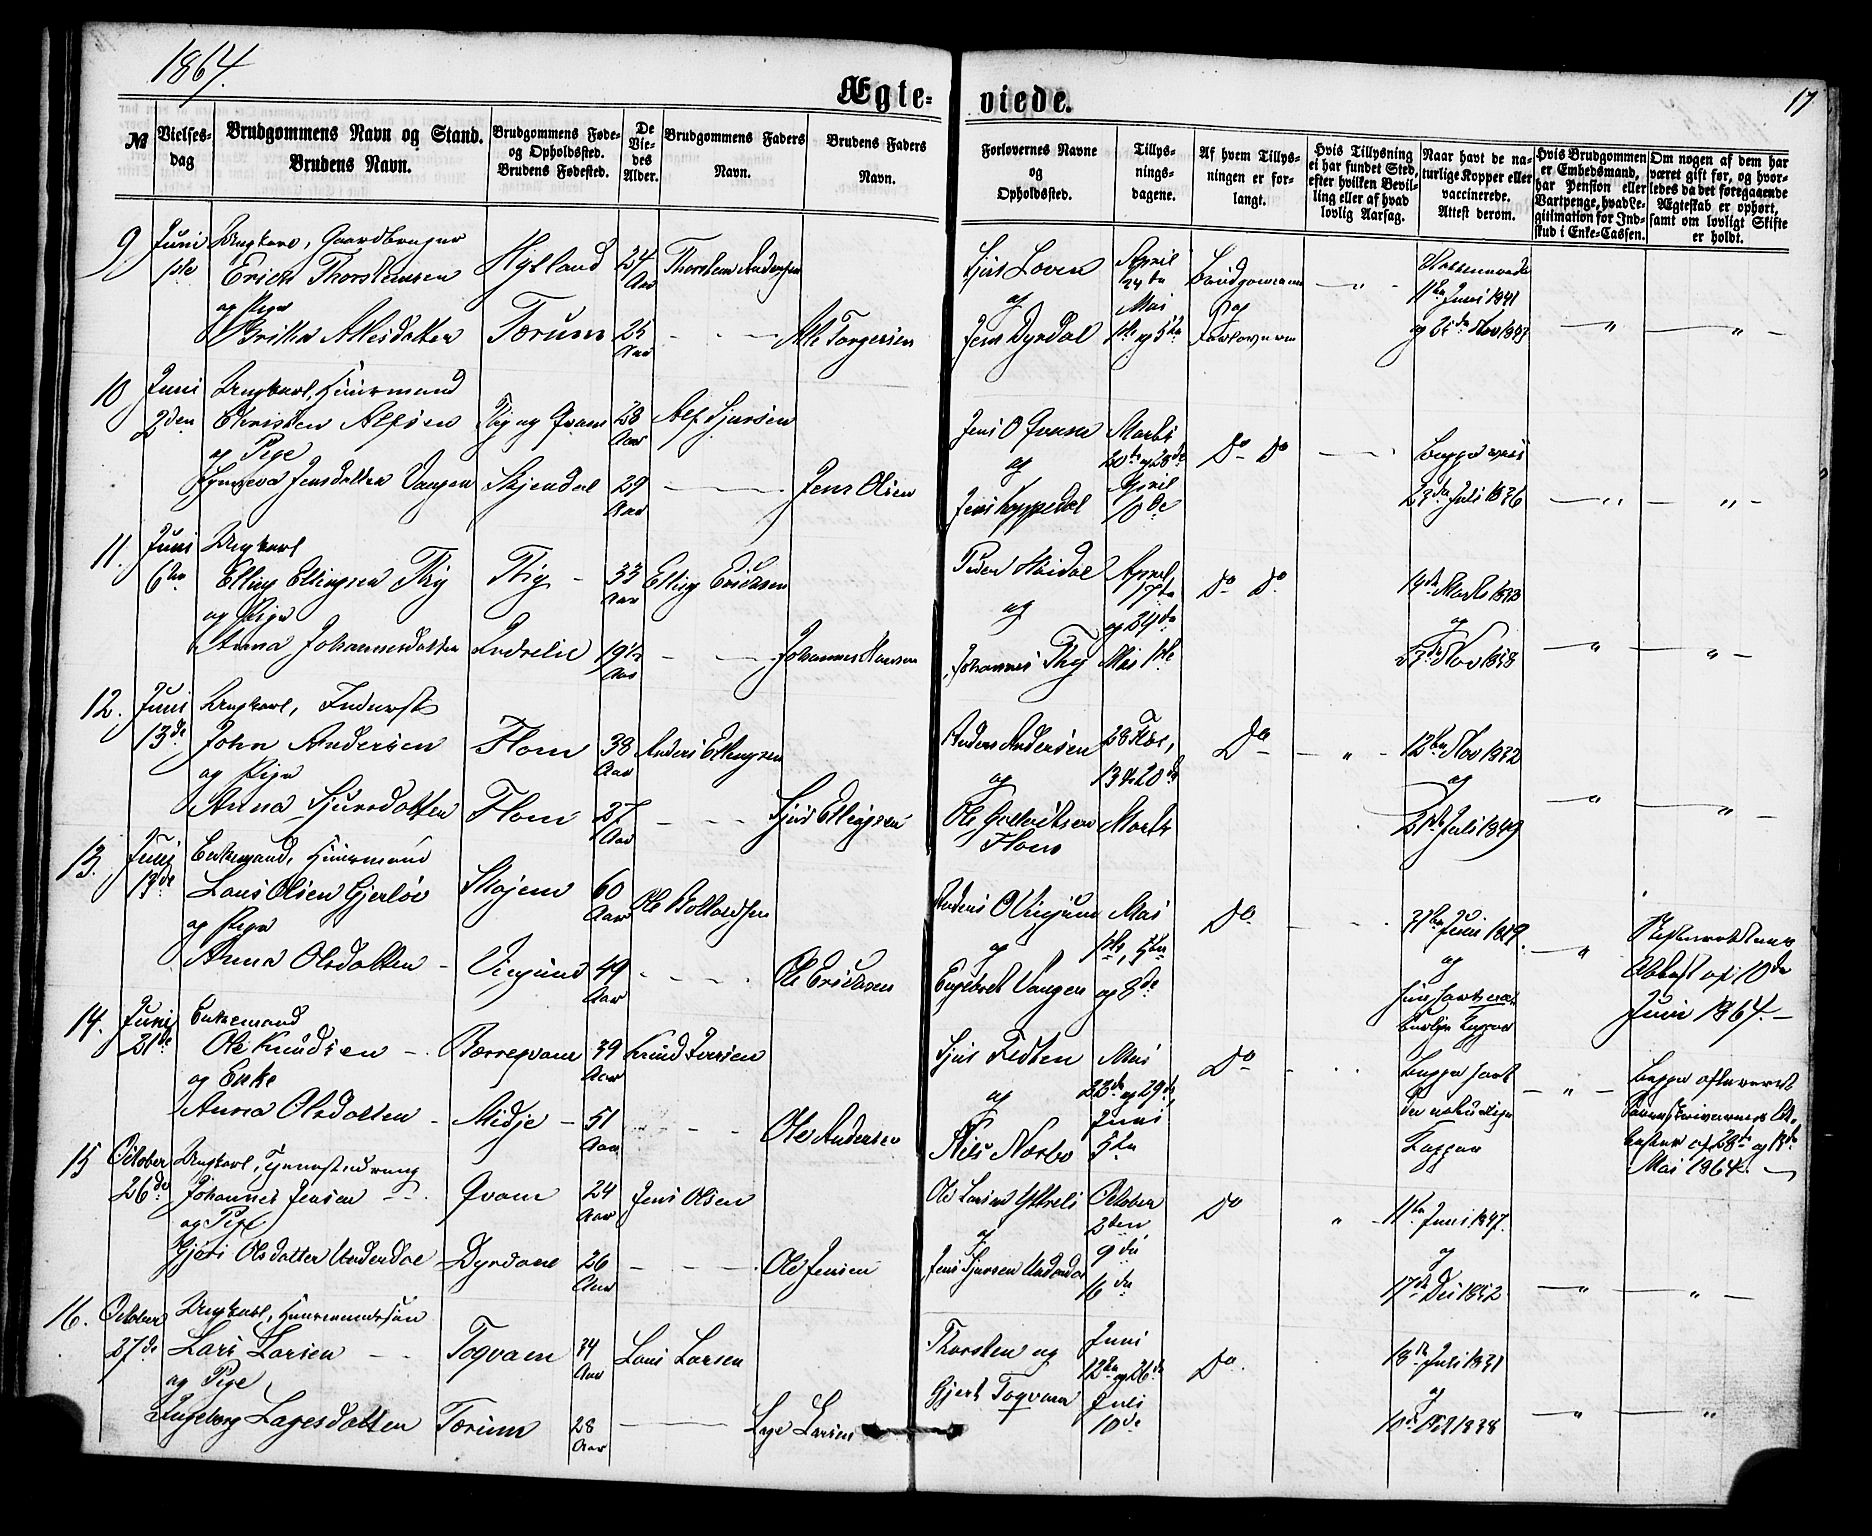 1864.
17
Ægte-viede.
№
Vielses-dag
Brudgommens Navn og Stand.
Brudens Navn.
Brudgommens Føde- og Opholdssted.
Brudens Fødested.
De Vie-des Alder.
Brudgommens Faders Navn.
Brudens Faders Navn.
Forlovernes Navne og Opholdssted.
Tillys-nings-dagene.
Af hvem Tillys-ningen er for-langt.
Hvis Tillysning ei har fundet Sted, efter hvilken Bevil-ling eller af hvad lovlig Aarsag.
Naar havt de na-turlige Kopper eller vaccinerede. Attest derom.
Hvis Brudgommen er Embedsmand, har Pension eller Vartpenge, hvad Le-gitimation for Ind-skud i Enke-Cassen.
Om nogen af dem har været gift før, og hvor-ledes da det foregaaende Ægteskab er ophørt, samt om lovligt Skifte er holdt.
9 Juni 1ste Ungkarl, Gaardbruger
Erich Thorsteinsen Hylland 24 Aar Thorstein Andersen
og Pige
Britha Atlesdatter Tærum 25 Aar Atle Torgersen
Sjur Loven og Jens Dyrdal
April 24de Mai 1ste og 5te
Brudgommen og Forloverne
11te Juni 1841
og
10 Juni 2den Ungkarl, Huusmand
Christen Alfsen Thy og Qvam 28 Aar Alf Sjursen
og Pige
Synneva Jensdatter Vangen Skjerdal 29 Aar Jens Olsen
Jens O Qvam og Jens Kappedal
Marts 20de og 28de April 10de
Do Do
Begge vacc
23de Juli 1836
11. Juni 6te Ungkarl
Elling Ellingsen Thy Thy 33 Aar Elling Erichsen
og Pige
Anna Johannesdatter Indrelie 19½ Aar Johannes Hansen
Peder Høidal og Johannes Thy
April 17de og 24de Mai 1ste
Do Do
og
12. Juni 13de Ungkarl, Inderst
John Andersen Flom 38 Aar Anders Ellingsen
og Pige
Anna Sjursdatter Flom 27 Aar Sjur Ellingsen
Anders Andersen og Ole Flom
28 Febr, 13 & 20de Marts
Do
12te Nov 1832
og
21de Juli 1849
13. Juni 13de Enkemand, Huusmand
Lars Olsen Gjerløe Skjern 60 Aar Ole
og Pige
Anna Olsdatter Vinjum 49 Aar Ole Erichsen
Anders O Vinjum og Engebret Vangen
Mai 1ste, 5te og 8de
Do
21de Juni 1819.
og
Skifterettens Attest af 10de
Juni 1864.
14. Juni 21de Enkemand
Ole Knudsen 39 Aar Knud Iversen
og Enke
Anna Olsdatter Midje 51 Aar Ole Andersen
Sjur Fedten og Nils Norbo
Mai 22de og 29de, Juni 5te
Do
Begge havt
de naturlige
Kopper
Begge efter
Sorenskriverens At-
tester af 28de og 13de
Mai 1864.
15 October 26de Ungkarl, Tjenestedreng
Johannes Jensen Qvam 24 Aar Jens Olsen
og Pige
Gjøri Olsdatter Underdal Dyrdal 26 Aar Ole Jensen
Ole Larsen Ytreli og Jens Sjursen Underdal
October 2den 9de 16de
Do
11te Juni 1847.
og
17de Dec 1842
16. October 27de Ungkarl, Huusmandssøn
Lars Larsen Togvam 34 Aar Lars Larsen
og Pige
Ingeborg Lagesdatter Tærum 28 Aar Lage Larsen
Thorsten og Gjert Togvam
Juni 12te og 26de Juli 10de
Do.
18de Juli 1831
og
10de Oct 1838